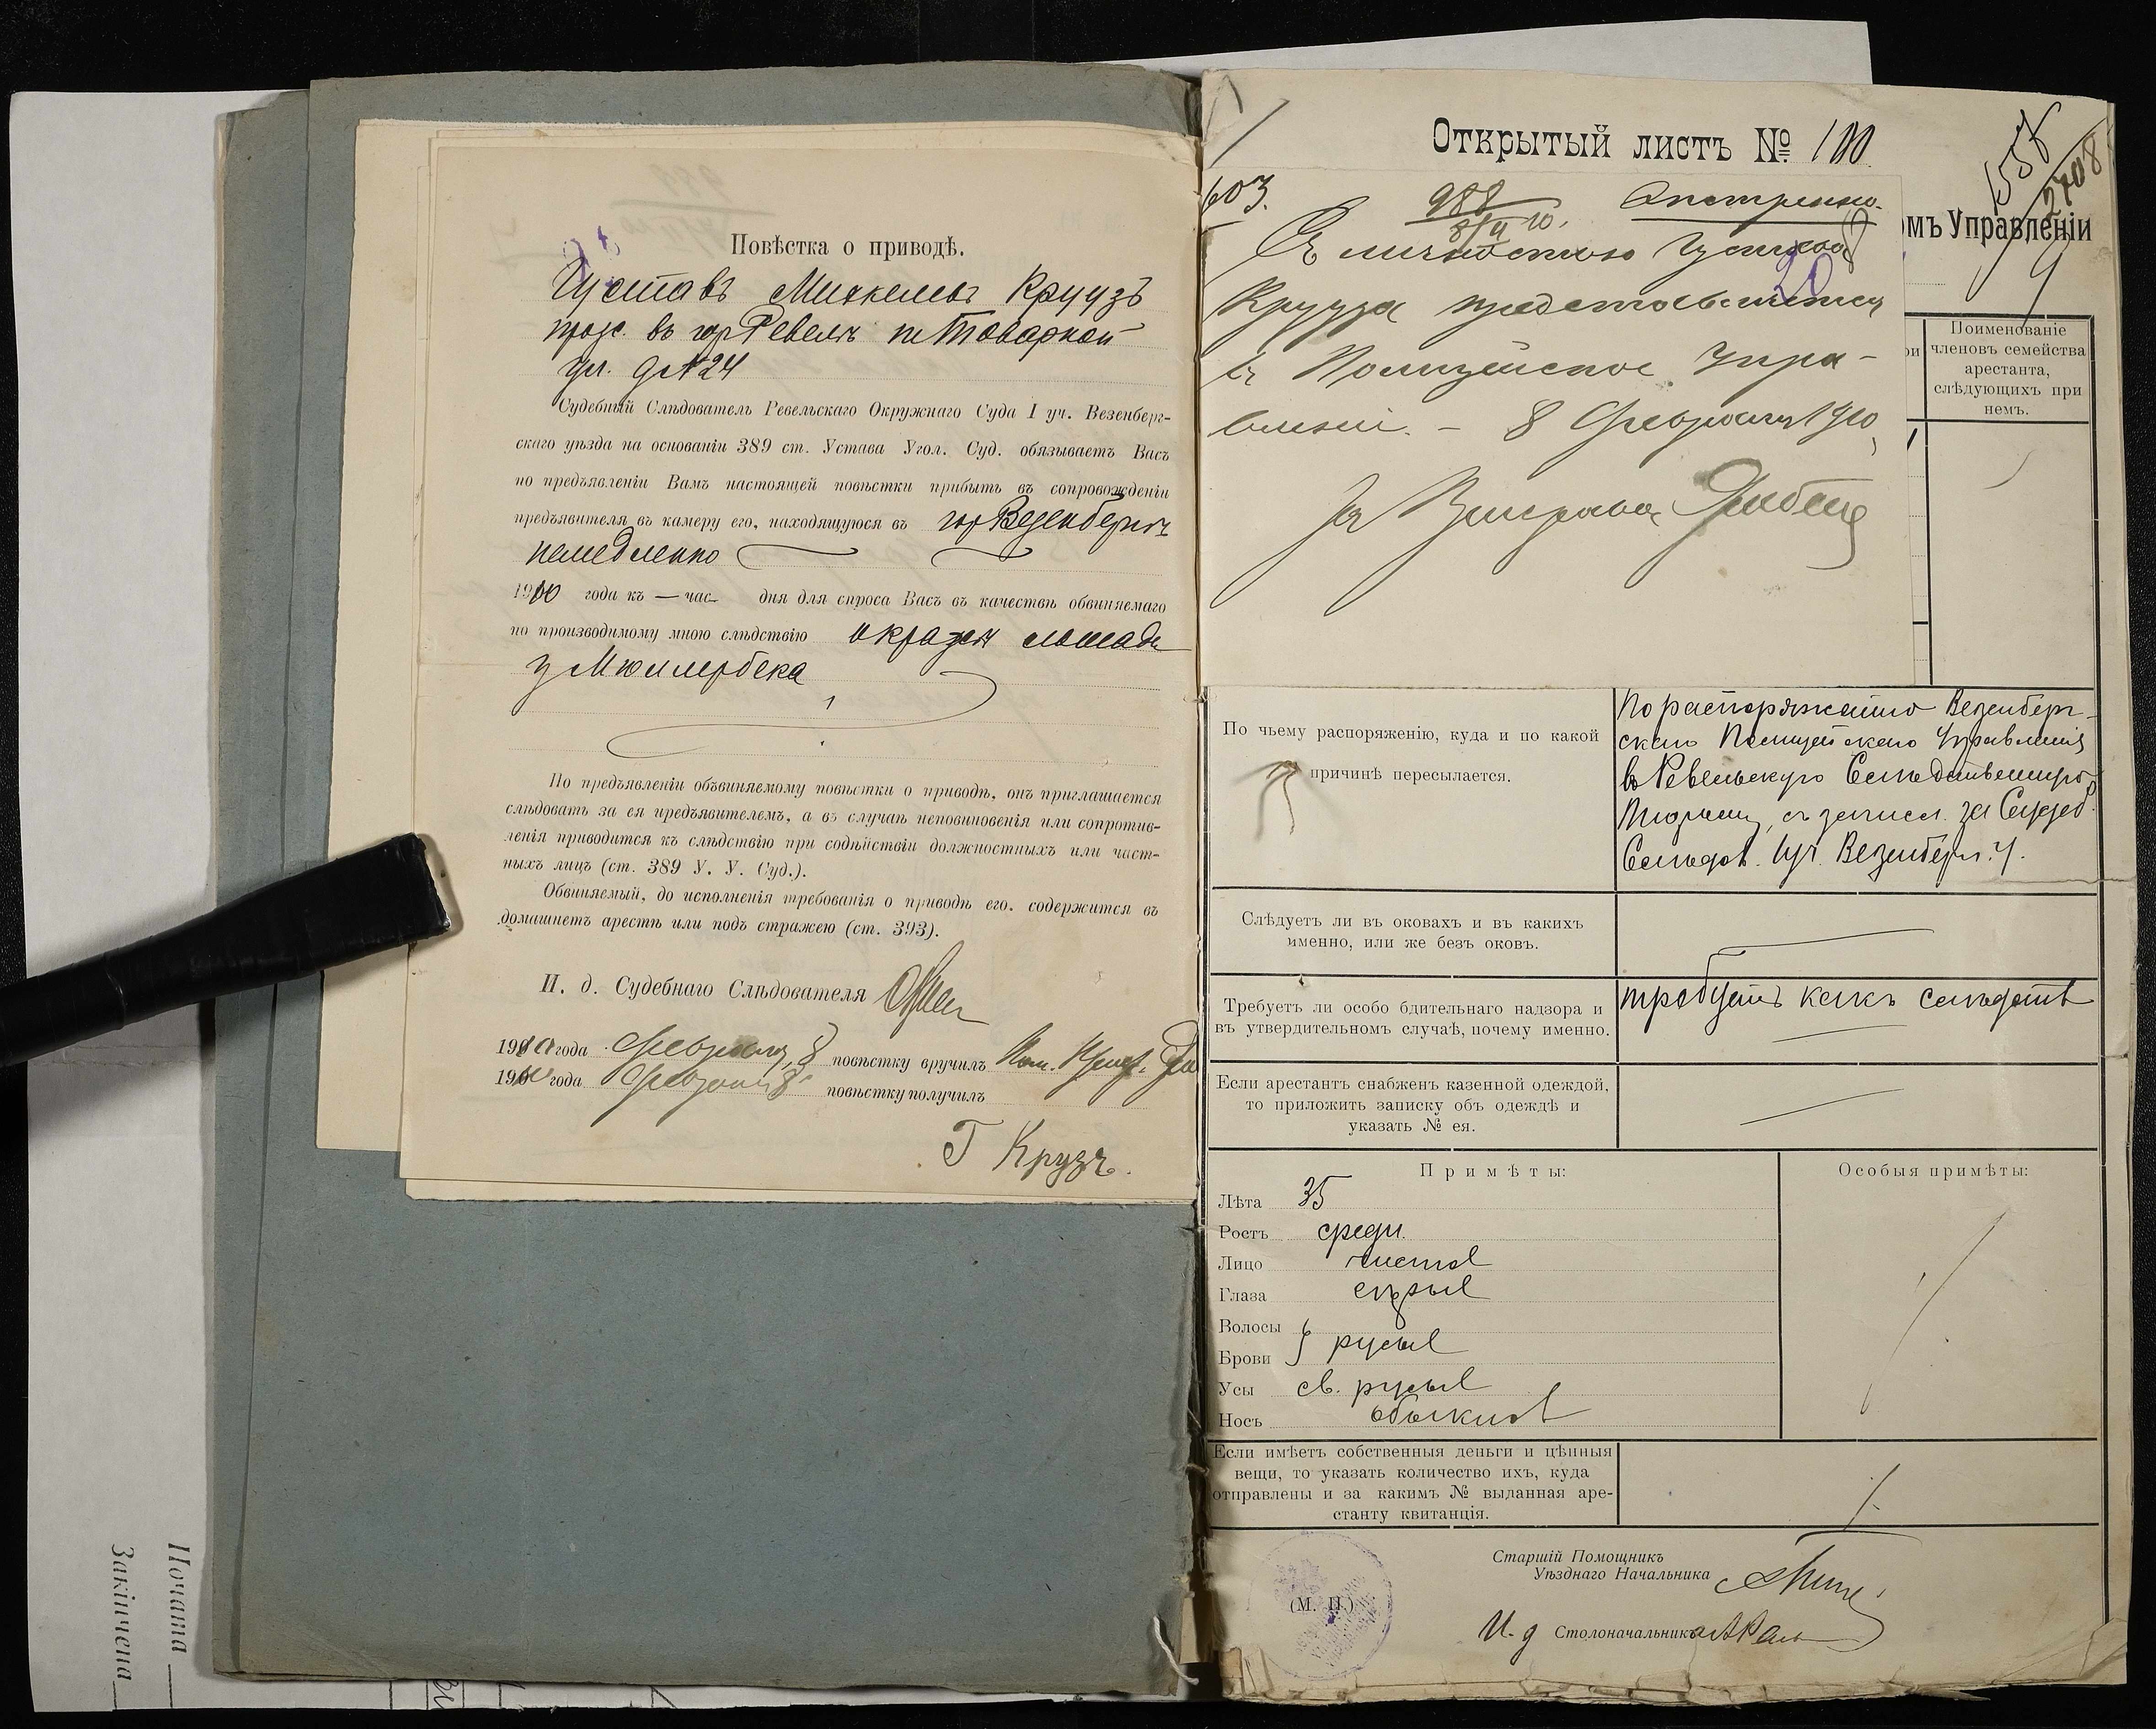 Повѣстка о приводѣ.
Густавъ Михкелевъ Круузъ
прож. въ гор Ревелѣ по Товарной
ул. д № 24
Судебный Слѣдователь Ревельскаго Окружнаго Суда I уч. Везенберг-
скаго уѣзда на основаніи 389 ст. Устава Угол. Суд. обязываетъ Васъ
по предъявленіи Вамъ настоящей повѣстки прибыть въ сопровожденіи
предъявителя въ камеру его, находящуюся въ гор Везенбергѣ
немедленно
1910 года къ — час. дня для спроса Васъ въ качествѣ обвиняемаго
по производимому мною слѣдствію о кражѣ лошади
у Мюллербека
По предъявленіи объвиняемому повѣстки о приводѣ, онъ приглашается
слѣдовать за ея предъявителемъ, а въ случаѣ неповиновенія или сопротив-
ленія приводится къ слѣдствію при содѣйствіи должностныхъ или част-
ныхъ лицъ (ст. 389 У. У. Суд.).
Обвиняемый, до исполненія требованія о приводѣ его, содержится въ
домашнемъ арестѣ или подъ стражею (ст. 393).
И. д. Судебнаго Слѣдователя
1910 года Февраля 8 повѣстку вручилъ Пом.
1910 года Февраля 8 повѣстку получилъ
Г Крузъ.
Открытый листъ № 100
1557
2708
603.
988
8/II 10.
Экстренно.
омъ Управленіи
Съ личностью Густава
20
Крууза представляется
въ Полицейское Упра-
вленіе. — 8 Февраля 1910
За
Поименованіе
членовъ семейства
арестанта,
слѣдующихъ при
немъ.
По чьему распоряженію, куда и по какой
причинѣ пересылается.
По распоряженію Везенберг-
скаго Полицейскаго Управленія
въ Ревельскую Слѣдственную
Тюрьму, съ зачисл. за Судеб.
Слѣдов. I уч. Везенберг. у.
Слѣдуетъ ли въ оковахъ и въ какихъ
именно, или же безъ оковъ.
Требуетъ ли особо бдительнаго надзора и
въ утвердительномъ случаѣ, почему именно.
требуетъ какъ слѣдств
Если арестантъ снабженъ казенной одеждой,
то приложить записку объ одеждѣ и
указать № ея.
Примѣты:
Особыя примѣты:
Лѣта 35
Ростъ средн.
Лицо чистое
Глаза сѣрые
Волосы
Брови русые
Усы св. русые
Носъ обыкнов
Если имѣетъ собственныя деньги и цѣнныя
вещи, то указать количество ихъ, куда
отправлены и за какимъ № выданная аре-
станту квитанція.
Старшій Помощникъ
Уѣзднаго Начальника
(М. П.)
И. д Столоначальника
Почата
Закінчена